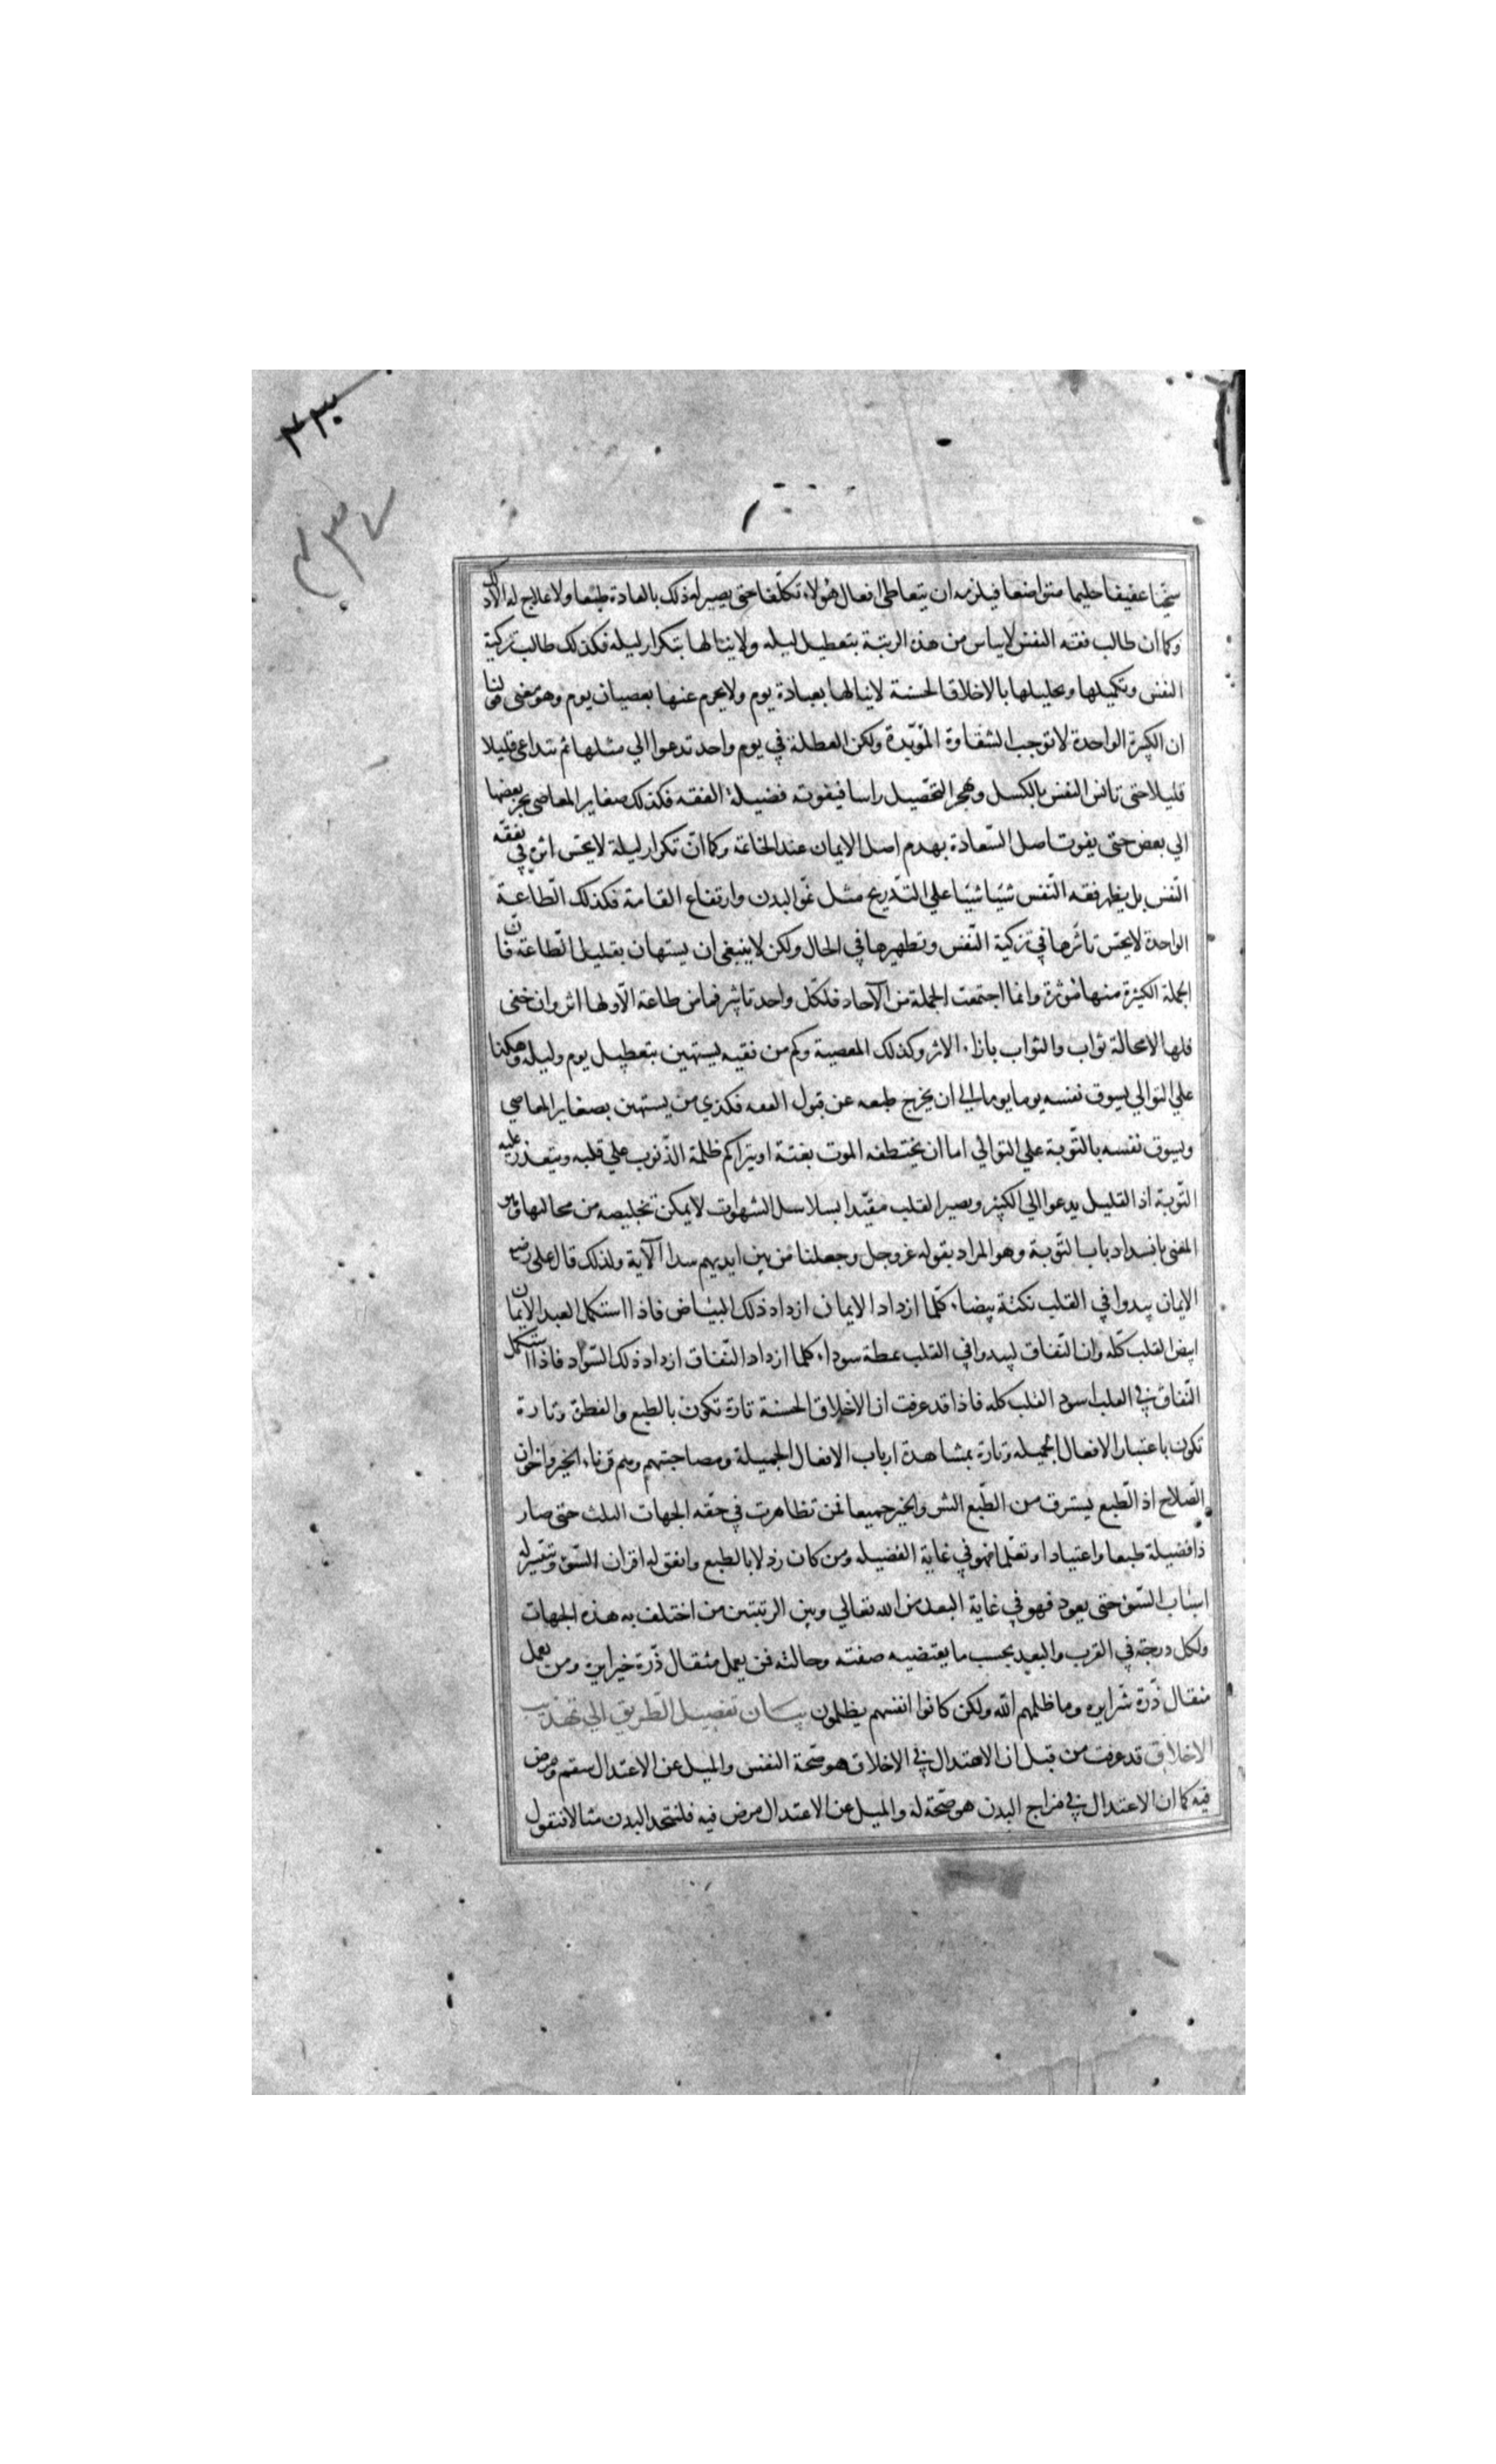 ۴۳۰
۴۳۷
سخيا عفيفا حليما متواضعا فيلزمه ان يتعاطي افعال هؤلاء تكلّفا حتى يصير له ذلك بالعادة طبعا ولا علاج له الا ذلك
وكما ان طالب فقه النفس لا يياس من هذه الرتبة بتعطيل ليله ولا ينالها بتكرار ليله فكذلك طالب تزكية
النفس وتكميلها وتحليلها بالاخلاق الحسنة لا ينالها بعبادة يوم ولا يحرم عنها بعصيان يوم وهو معنى قولنا
ان الكبيرة الواحدة لا توجب الشقاوة المؤبّدة ولكن العطلة في يوم واحد تدعوا الي مثلها ثم تتداعي قليلا
قليلا حتى تانس النفس بالكسل وهجر التحصيل راسا فيفوته فضيلة الفقه فكذلك صغاير المعاصي يجر بعضها
الي بعض حتى يفوت اصل السّعادة بهدم اصل الايمان عند الخاتمة وكما انّ تكرار ليلة لا يحسّ اثره في تفقه
النّفس بل يظهر فقه النّفس شيئا شيئا علي التّدريج مثل نموّ البدن وارتفاع القامة فكذلك الطّاعة
الواحدة لا يحسّ تاثّرها في تزكية النّفس وتطهيرها في الحال ولكن لا ينبغى ان يستهان بقليل الطاعة فانّ
الجملة الكثيرة منها مؤثرة وانما اجتمعت الجملة من الآحاد فلكلّ واحد تاثير فما من طاعة الّا ولها اثر وان خفى
فلها لا محالة ثواب والثواب بازاء الاثر وكذلك المعصية وكم من فقيه يستهين بتعطيل يوم وليله وهكذا
علي التوالي يسوف نفسه يوما يوما الي ان يخرج طبعه عن قبول الفقه فكذي من يستهين بصغاير المعاصي
ويسوف نفسه بالتّوبة علي التوالي اما ان يختطفه الموت بغتة او يتراكم ظلمة الذّنوب علي قلبه ويتعذر عليه
التّوبة اذ القليل يدعوا الي الكثير ويصير القلب مقيّدا بسلاسل الشهوات لا يمكن تخليصه من مخالبها وهو
المعنى بانسداد باب التّوبة وهو المراد بقوله عز وجل وجعلنا من بين ايديهم سدا الآية ولذلك قال علي رضي
الايمان يبدوا في القلب نكتة بيضاء كلّما ازداد الايمان ازداد ذلك البياض فاذا استكمل العبد الايمان
ابيض القلب كلّه وان النّفاق ليبدوا في القلب نمطة سوداء كلما ازداد النّفاق ازداد ذلك السّواد فاذا استكمل
النّفاق في القلب اسود القلب كله فاذا قد عرفت ان الاخلاق الحسنة تارة تكون بالطبع والفطرة وتارة
تكون باعتبار الافعال الجميله وتارة بمشاهدة ارباب الافعال الجميلة ومصاحبتهم وهم قرناء الخير واخوان
الصّلاح اذ الطّبع يسترق من الطّبع الشر والخير جميعا فمن تظاهرت في حقّه الجهات الثلث حتى صار
ذا فضيلة طبعا واعتيادا وتعلّما فهو في غاية الفضيله ومن كان رذلا بالطبع واتفق له اقران السّوء وتيسّر له
اسباب السّوء حتى يعود فهو في غاية البعد من الله تعالي وبين الرتبتين من اختلف به هذه الجهات
ولكل درجة في القرب والبعد بحسب ما يقتضيه صفته وحالته فمن يعمل مثقال ذّرة خيرا يره ومن يعمل
مثقال ذّرة شّرا يره وما ظلمهم الله ولكن كانوا انفسهم يظلمون بيان تفصيل الطّريق الي تهذيب
الاخلاق قد عرفت من قبل ان الاعتدال في الاخلاق هو صّحة النفس والميل عن الاعتدال سقم ومرض
فيه كما ان الاعتدال في مزاج البدن هو صّحة له والميل عن الاعتدال مرض فيه فلنتخذ البدن مثالا فنقول